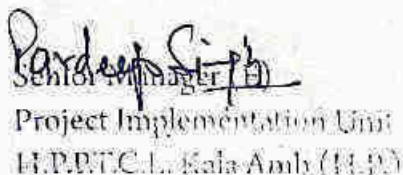 Pardeep Singh
Senior Manager
Project Implementation Unit
H.P.P.T.C.L., Kala Amb (H.P.)